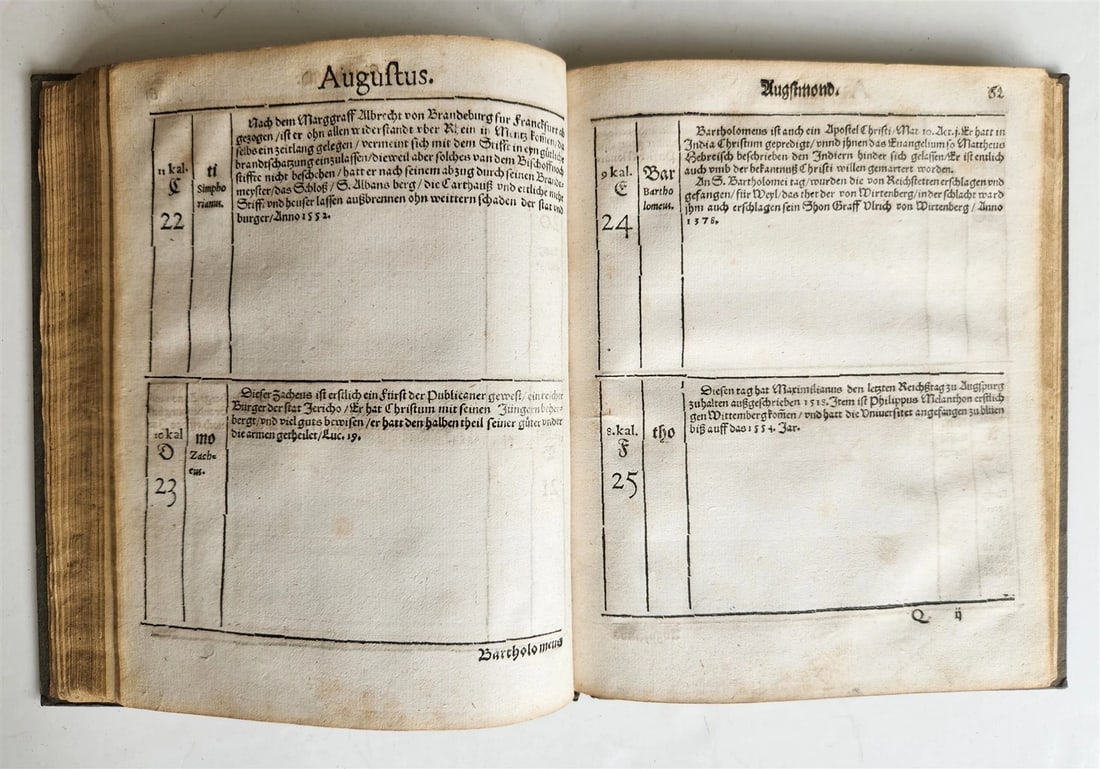 Augustus.
11 kal.
C
22
ti
Simpho
rianus.
Nach dem Marggraff Albrecht von Brandeburg fur Franckfurt ab
gezogen / ist er ohn allen widerstandt vber Rhein in Mentz kom̃en / da
selbs ein zeitlang gelegen / vermeint sich mit dem Stiffe in eyn gütliche
brandtschatzung einzulassen / dieweil aber solches van dem Bischoff noch
stiffte nicht beschehen / hatt er nach seinem abzug durch seinen Brande
meyster / das Schloß / S. Albans berg / die Carthauß vnd etliche mehr
Stiff. vnd heuser lassen außbrennen ohn weittern schaden der stat vnd
burger / Anno 1552.
10 kal
D
23
mo
Zach-
eus.
Dieser Zacheus ist erstlich ein Fürst der Publicaner gewest / ein reicher
Burger der stat Jericho / Er hat Christum mit seinen Jüngern beher-
bergt / vnd viel guts bewisen / er hatt den halben theil seiner güter vnder
die armen getheilet / Luc. 19.
Bartholomeus
Augstmond.
62
9 kal.
E
24
Bar
Bartho
lomeus.
Bartholomeus ist auch ein Apostel Christi / Mat 10. Act. j. Er hatt in
India Christum gepredigt / vnnd jhnen das Euangelium so Mattheus
Hebreisch beschrieben den Indiern hinder sich gelassen / Er ist entlich
auch vmb der bekantnuß Christi willen gemartert worden.
An S. Bartholomei tag / wurden die von Reichstetten erschlagen vnd
gefangen / für Weyl / das thet der von Wirtenberg / in der schlacht ward
jhm auch erschlagen sein Shon Graff Vlrich von Wirtenberg / Anno
1378.
8. kal.
F
25
tho
Diesen tag hat Maximilianus den letzten Reichßtag zu Augspurg
zuhalten außgeschrieben 1518. Item ist Philippus Melanthon erstlich
gen Wittemberg kom̃en / vnd hatt die Vniuersitet angefangen zu blüen
biß auff das 1554. Jar.
Q ij